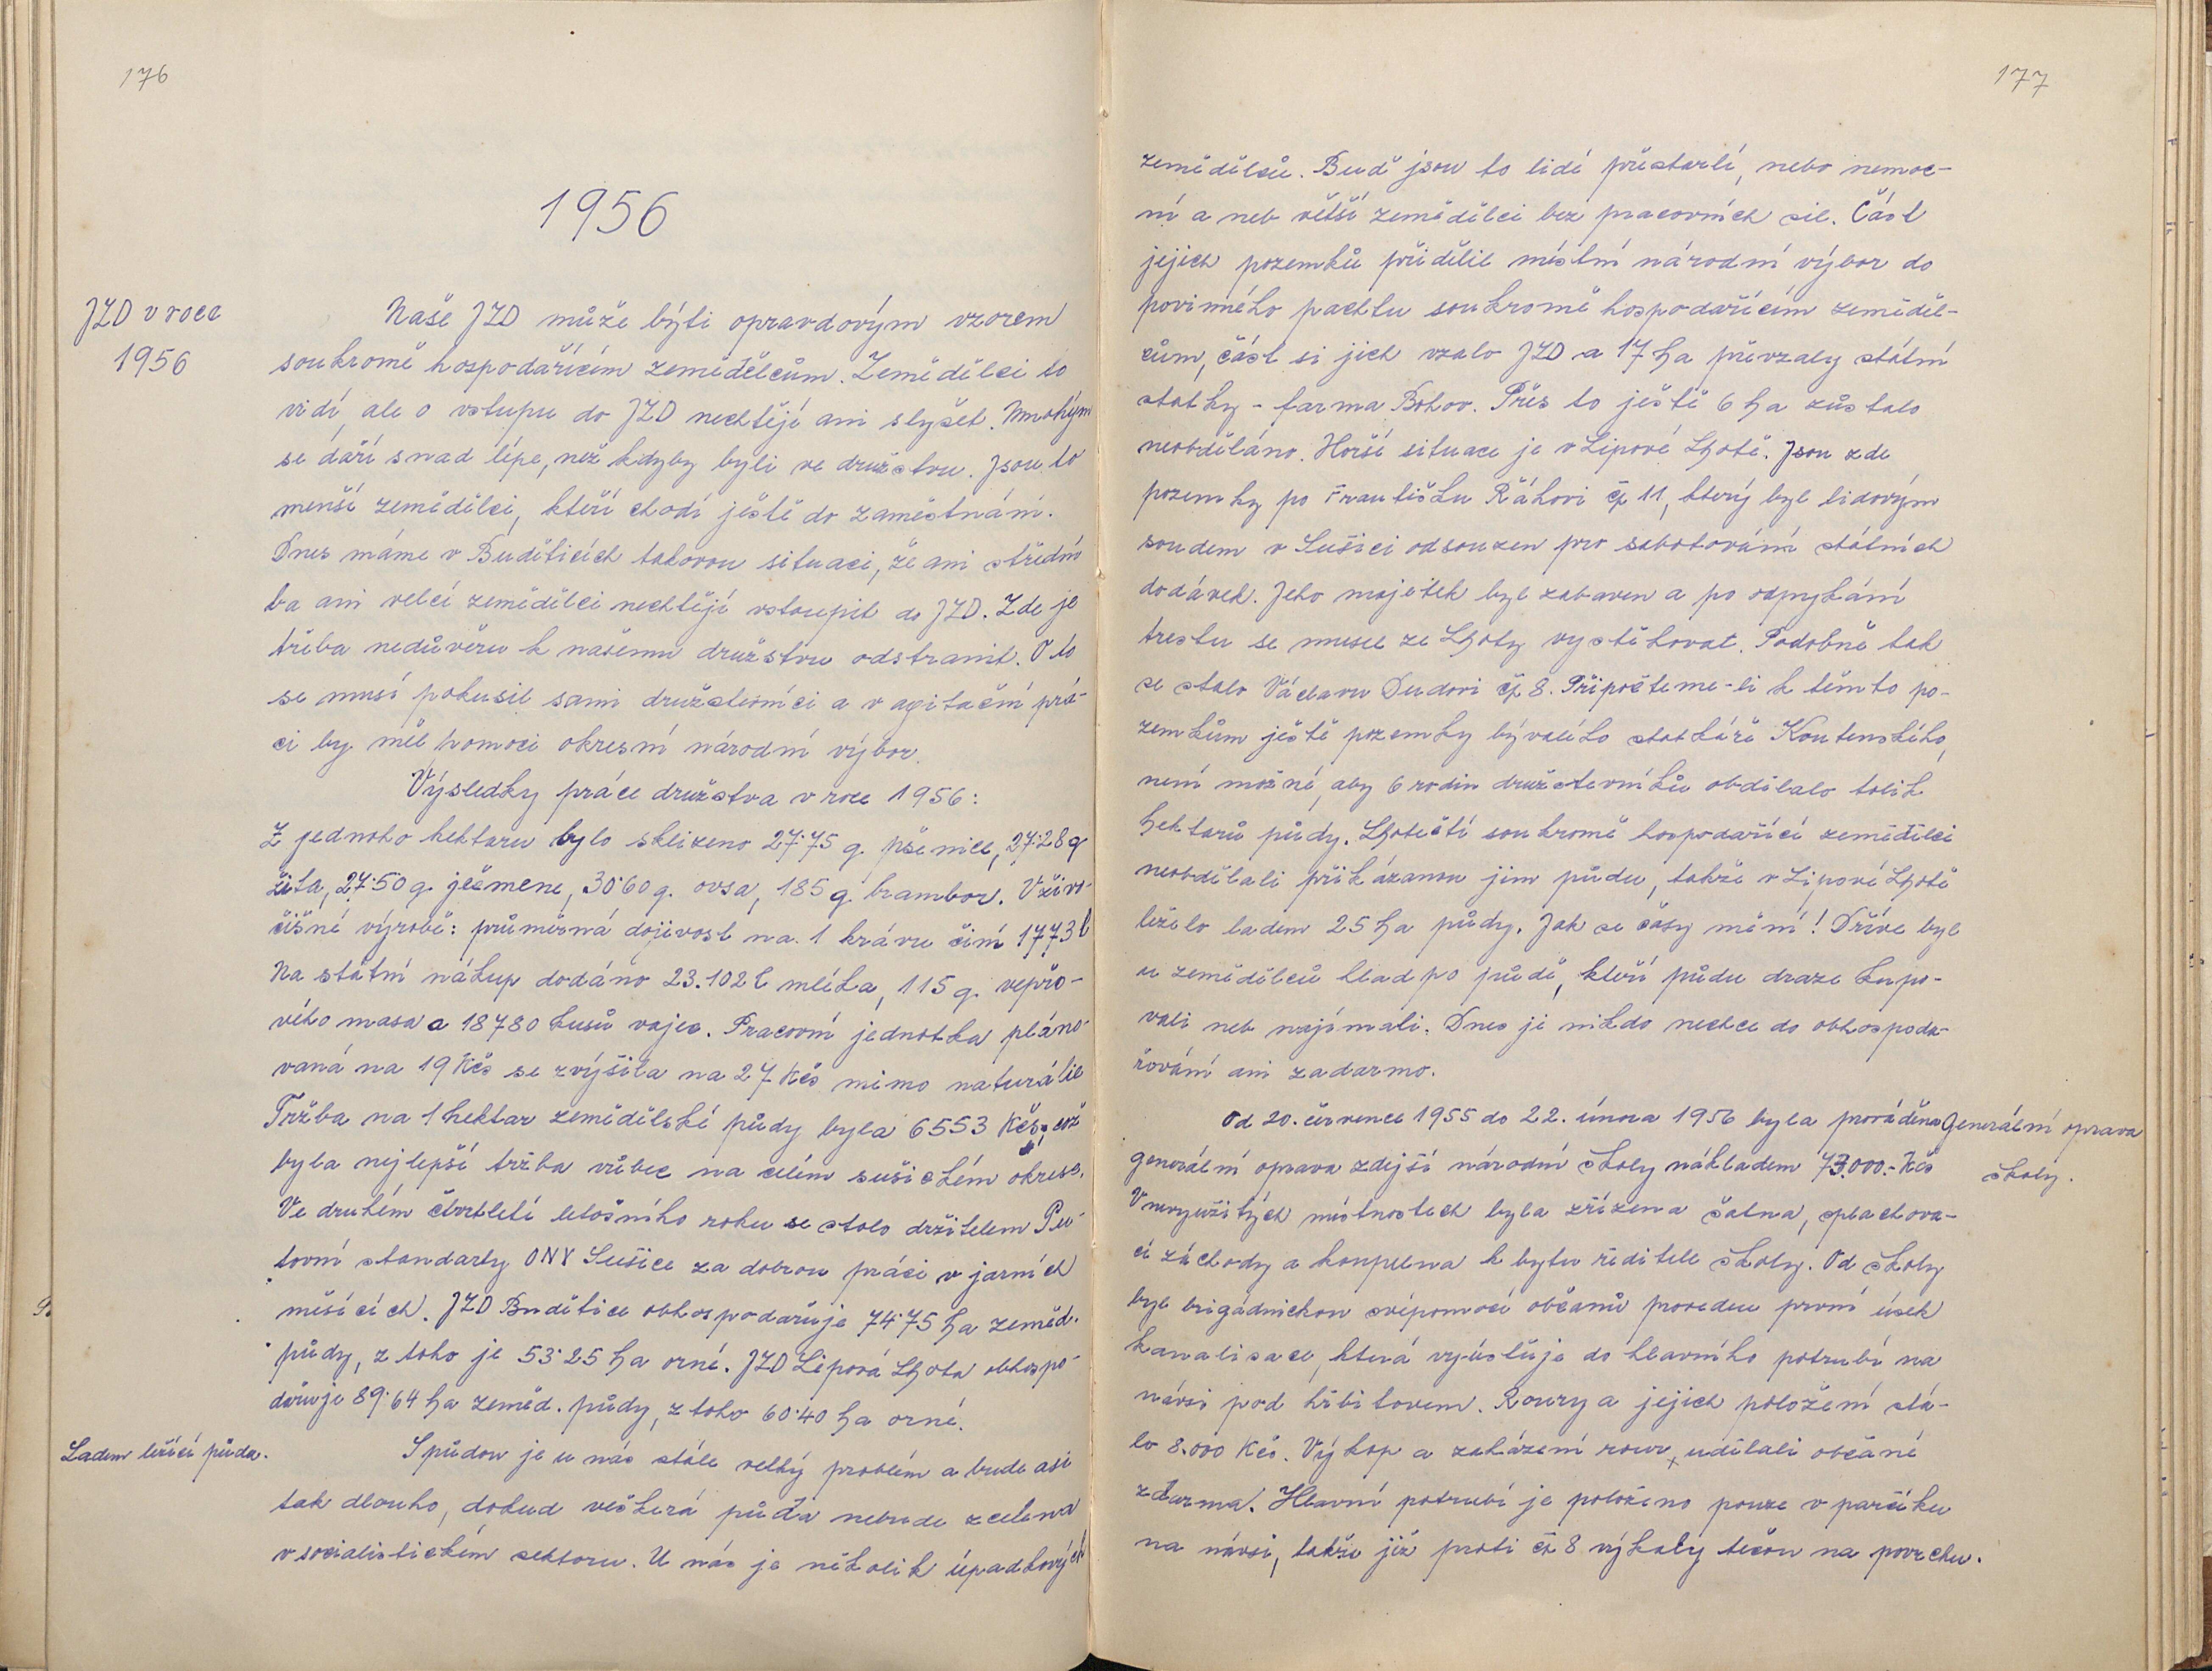 176
1956
JZD v roce
1956
Naše JZD může býti opravdovým vzorem
soukromě hospodařícím zemědělcům. Zemědělci to
vidí, ale o vstupu do JZD nechtějí ani slyšet. Mnohým
se daří snad lépe, než kdyby byli ve družstvu. Jsou to
menší zemědělci, kteří chodí ještě do zaměstnání.
Dnes máme v Budětících takovou situaci, že ani střední
ba ani velcí zemědělci nechtějí vstoupit do JZD. Zde je
třeba nedůvěru k našemu družstvu odstranit. O to
se musí pokusit sami družstevníci a v agitační prá-
ci by měl pomoci okresní národní výbor.
Výsledky práce družstva v roce 1956:
Z jednoho hektaru bylo sklizeno 27·75 q. pšenice, 27·28 q
žita, 27·50 q. ječmene, 30·60 q. ovsa, 185 q. brambor. V živo-
čišné výrobě: průměrná dojivost na 1 krávu činí 1773 l
Na státní nákup dodáno 23.102 l mléka, 115 q. vepřo-
vého masa a 18780 kusů vajec. Pracovní jednotka pláno-
vaná na 19 Kčs se zvýšila na 27 Kčs mimo naturálie
Tržba na 1 hektar zemědělské půdy byla 6553 Kčs, což
byla nejlepší tržba vůbec na celém sušickém okrese.
Ve druhém čtvrtletí letošního roku se stalo držitelem Pu-
tovní standarty ONV Sušice za dobrou práci v jarních
měsících. JZD Budětice obhospodařuje 74·75 ha zeměd.
půdy, z toho je 53·25 ha orné. JZD Lipová Lhota obhospo-
dařuje 89·64 ha zeměd. půdy, z toho 60·40 ha orné.
Ladem ležící půda.
S půdou je u nás stále velký problém a bude asi
tak dlouho, dokud veškerá půda nebude zcelena
v socialistickém sektoru. U nás je několik úpadkových
177
zemědělců. Buď jsou to lidé přestarlí, nebo nemoc-
ní a neb větší zemědělci bez pracovních sil. Část
jejich pozemků přidělil místní národní výbor do
povinného pachtu soukromě hospodařícím zeměděl-
cům, část si jich vzalo JZD a 17 ha převzaly státní
statky - farma Bohov. Přes to ještě 6 ha zůstalo
neobděláno. Horší situace je v Lipové Lhotě. Jsou zde
pozemky po Františku Ráhovi čp 11, který byl lidovým
soudem v Sušici odsouzen pro sabotování státních
dodávek. Jeho majetek byl zabaven a po odpykání
trestu se musel ze Lhoty vystěhovat. Podobně tak
se stalo Václavu Dudovi čp 8. Připočteme-li k těmto po-
zemkům ještě pozemky bývalého statkáře Koutenského,
není možné, aby 6 rodin družstevníků obdělalo tolik
hektarů půdy. Lhotečtí soukromě hospodařící zemědělci
neobdělali přikázanou jim půdu, takže v Lipové Lhotě
leželo ladem 25 ha půdy. Jak se časy mění! Dříve byl
u zemědělců hlad po půdě, kteří půdu draze kupo-
vali neb najímali. Dnes ji nikdo nechce do obhospoda-
řování ani zadarmo.
Od 20. července 1955 do 22. února 1956 byla prováděna
Generální oprava
školy.
generální oprava zdejší národní školy nákladem 73.000.- Kčs
V nevyužitých místnostech byla zřízena šatna, splachova-
cí záchody a koupelna k bytu ředitele školy. Od školy
byl brigádnickou svépomocí občanů proveden první úsek
kanalisace, která vyúsťuje do hlavního potrubí na
návsi pod hřbitovem. Roury a jejich položení stá-
lo 8.000 Kčs. Výkop a zaházení rour, udělali občané
zdarma. Hlavní potrubí je položeno pouze v parčíku
na návsi, takže již proti čp 8 výkaly tečou na povrchu.